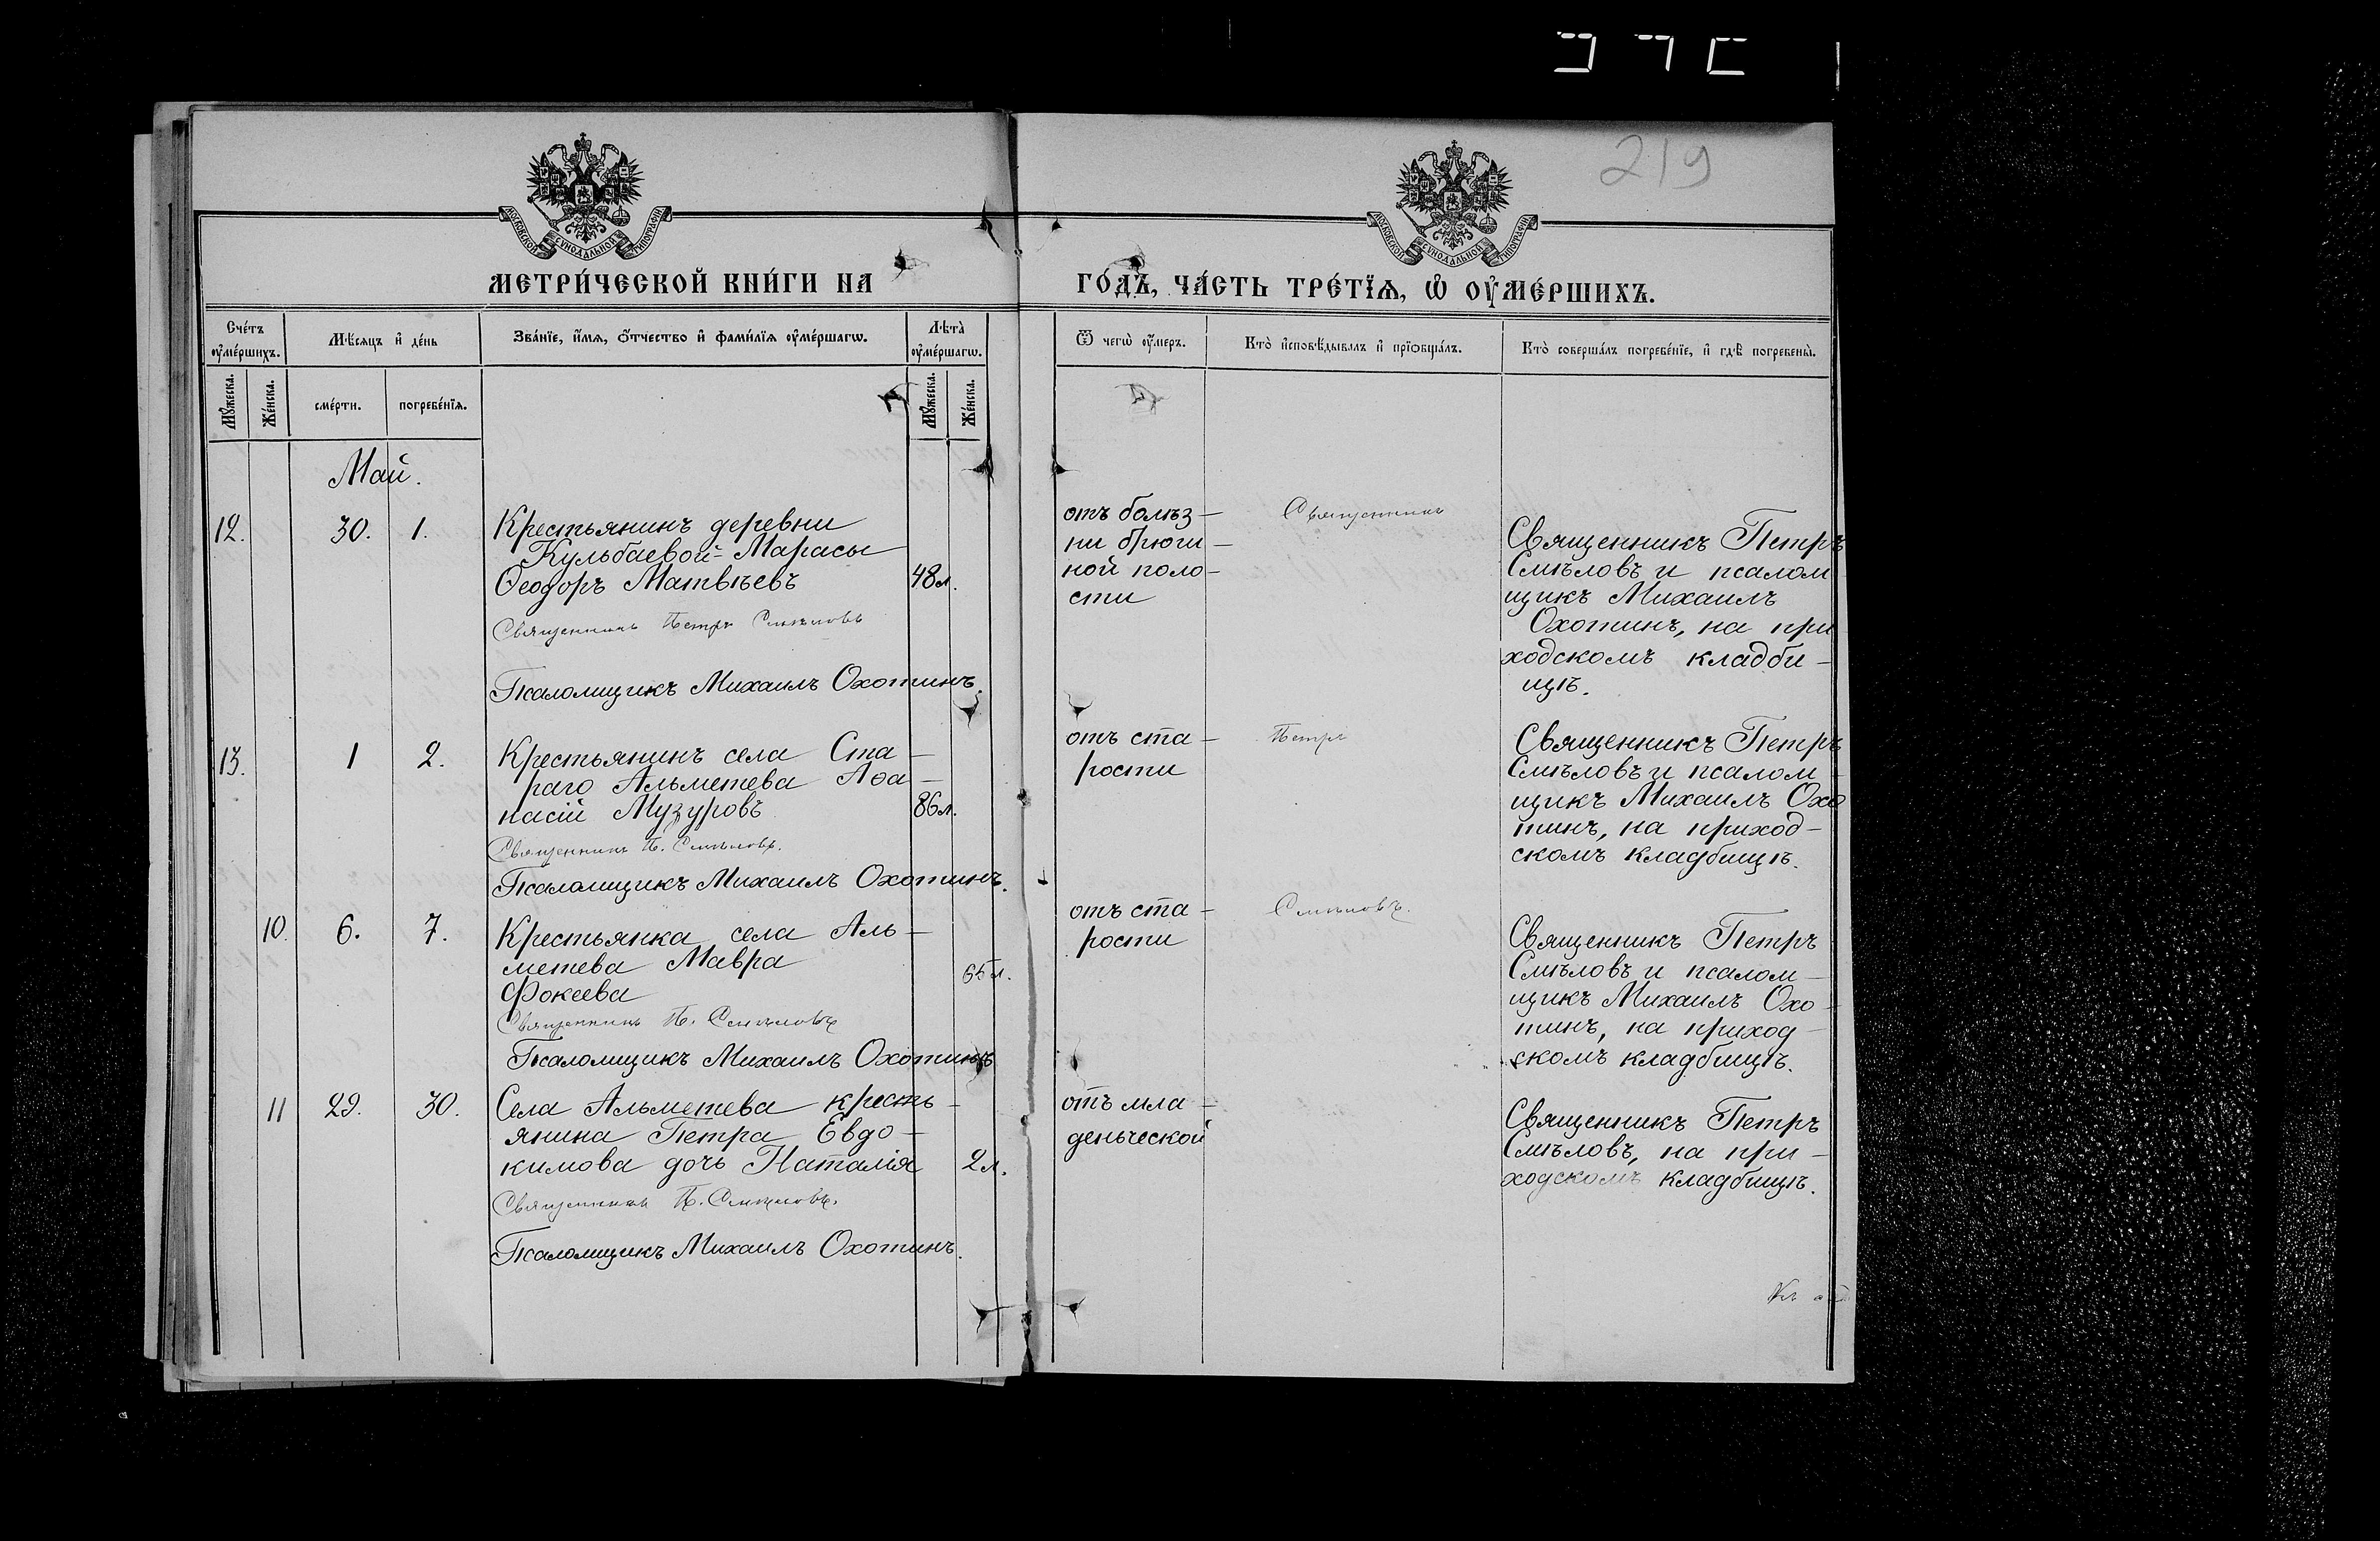 219
МОСКОВСКОЙ СѴНОДАЛЬНОЙ ТИПОГРАФІИ
МОСКОВСКОЙ СѴНОДАЛЬНОЙ ТИПОГРАФІИ
МЕТРИ́ЧЕСКОЙ КНИ́ГИ НА
ГО́ДЪ, ЧА́СТЬ ТРЕ́ТЇѦ, Ѡ҆ ОУ҆МЕ́РШИХЪ.
Сче́тъ оу҆ме́ршихъ.
Мѣ́сяцъ и҆ де́нь
Зва́нїе, и҆́мѧ, ѻ҆́тчество и҆ фами́лїѧ оу҆ме́ршагѡ.
Лѣта̀ оу҆ме́ршагѡ.
Ѿ чегѡ̀ оу҆́меръ.
Кто̀ и҆сповѣ́дывалъ и҆ прїѡбща́лъ.
Кто̀ соверша́лъ погребе́нїе, и҆ гдѣ̀ погребены̀.
Мꙋ́жеска.
Же́нска.
сме́рти.
погребе́нїѧ.
Мꙋ́жеска.
Же́нска.
Май.
12.
30.
1.
Крестьянинъ деревни
Кульбаевой-Марасы
Ѳеодоръ Матвѣевъ
48 л.
Священникъ Петръ Смѣловъ
Псаломщикъ Михаилъ Охотинъ.
отъ болѣз-
ни брюш-
ной поло-
сти
Священникъ
Священникъ Петръ
Смѣловъ и псалом
щикъ Михаилъ
Охотинъ, на при
ходскомъ кладби-
щѣ.
13.
1
2.
Крестьянинъ села Ста-
раго Альметева Аѳа-
насій Музуровъ
86 л.
Священникъ П. Смѣловъ.
Псаломщикъ Михаилъ Охотинъ.
отъ ста-
рости
Петръ
Священникъ Петръ
Смѣловъ и псалом-
щикъ Михаилъ Охо
тинъ, на приход-
скомъ кладбищѣ.
10.
6.
7.
Крестьянка села Аль-
метева Мавра
Фокеева
65 л.
Священникъ П. Смѣловъ
Псаломщикъ Михаилъ Охотинъ
отъ ста-
рости
Смѣловъ.
Священникъ Петръ
Смѣловъ и псалом-
щикъ Михаилъ Охо-
тинъ, на приход-
скомъ кладбищѣ.
11
29.
30.
Села Альметева кресть-
янина Петра Евдо-
кимова дочь Наталія
2 л.
Священникъ П. Смѣловъ.
Псаломщикъ Михаилъ Охотинъ.
отъ мла-
денческой
Священникъ Петръ
Смѣловъ, на при-
ходскомъ кладбищѣ.
Къ